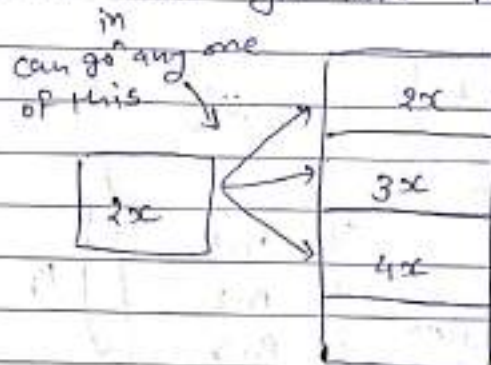 in
can go any one
of this
2x
2x
3x
4x